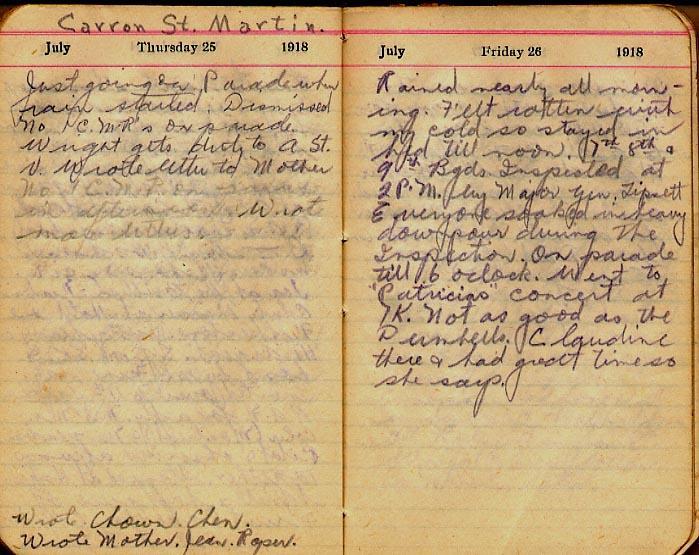 Carron St. Martin.
July Thursday 25 1918
Just going on Parade when
rain started. Dismissed
No 1 C.M.R's on parade
Wright gets duty to A St.
V. Wrote letter to Mother
No 1 C.M.R. on parade
in afternoon. Wrote
letters
Wrote Chown. Chen.
Wrote Mother. Jean. Roper.
July Friday 26 1918
Rained nearly all morn-
ing. Felt rotten with
my cold so stayed in
bed till noon. 7th 8th &
9th Bgds Inspected at
2 P.M. by Major Gen. Lipsett
Everyone soaked in heavy
downpour during the
Inspection. On parade
till 6 oclock. Went to
"Patricias" concert at
7K. Not as good as the
Dumbells. Claudine
there & had great time so
she says.